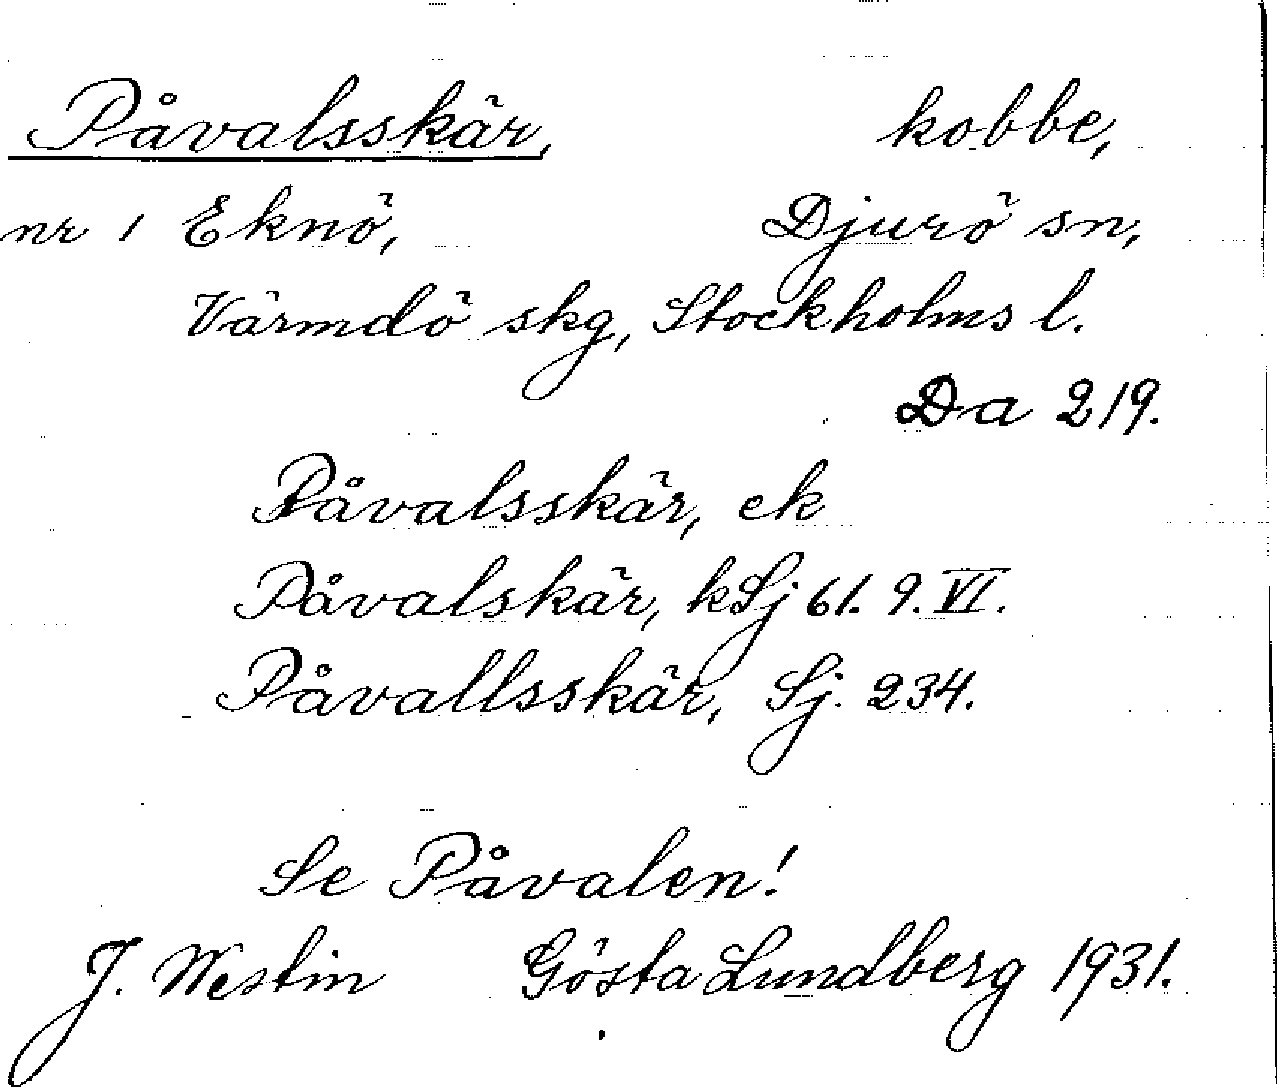 Påvalsskär, kobbe,
nr 1 Eknö, Djurö sn,
Värmdö skg, Stockholms l.
Da 219.
Påvalsskär, ek
Påvalskär, kSj 61. 9. VI.
Påvallsskär, Sj. 234.
Se Påvalen!
J. Westin Gösta Lundberg 1931.